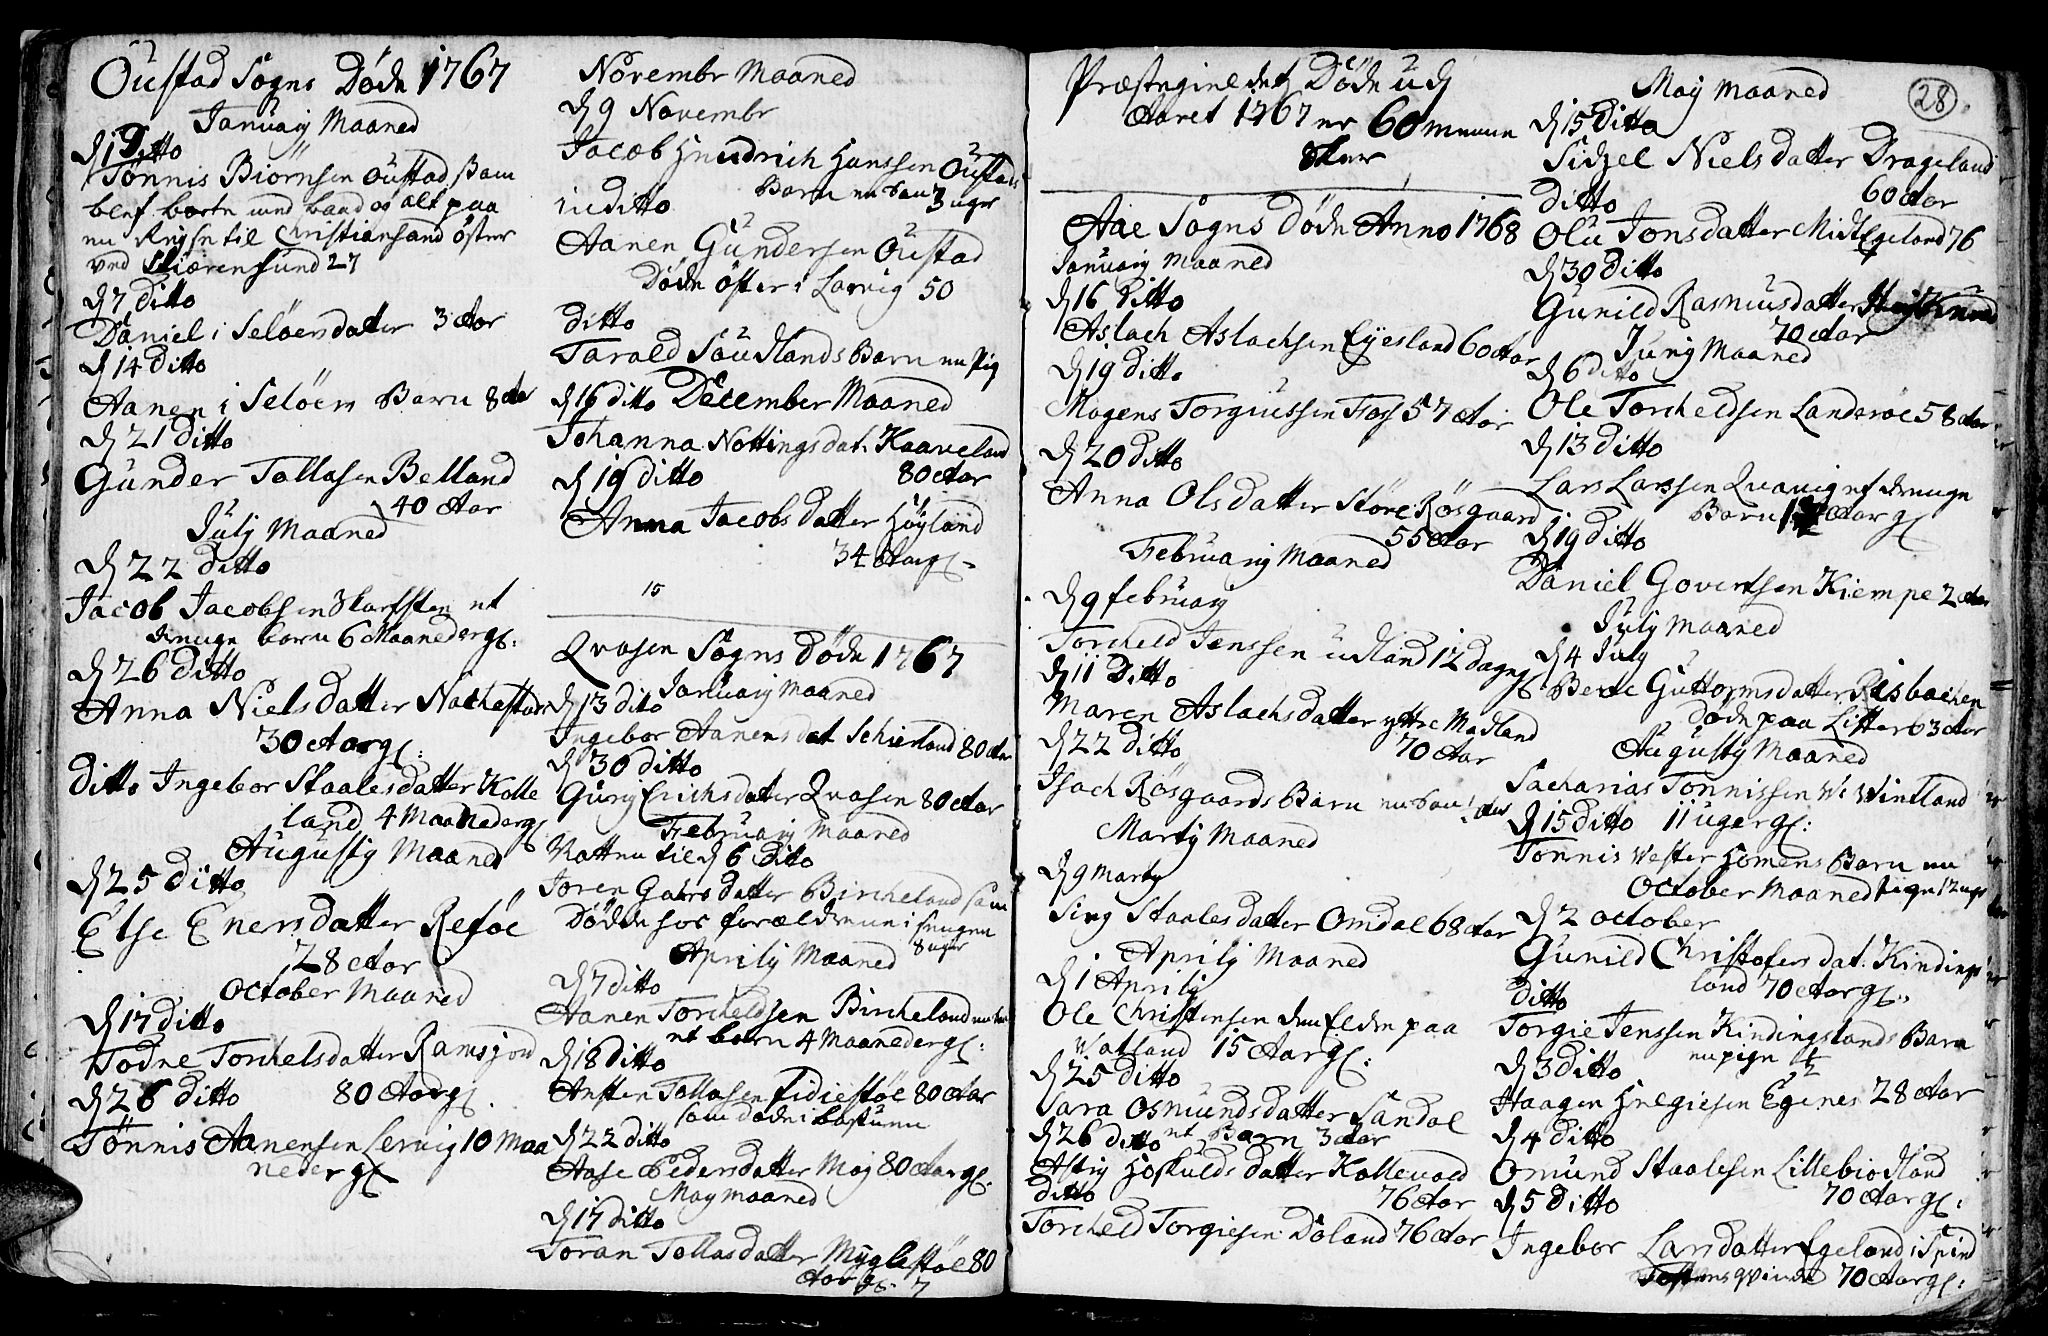 Oustad Sogns Døde 1767
Januarij Maaned
d 19 Ditto
Tønnis Biørnsen Oustad som
blef borte med baad og alt paa
en Reyse til Christiansand øster
ved 27
d 7 ditto
Daniel i Seløers datter 3 Aar
d 14 Ditto
Aanen i Seløers Barn 8 Aar
d 21 Ditto
Gunder Tollasen Belland
40 Aar
Julj Maaned
d 22 ditto
Jacob Jacobsen et
barn 6 Maaneder gl:
d 26 Ditto
Anna Niels datter
30 Aar gl:
Ditto Ingebor Staalesdatter Kolle
land 4 Maaneder gl
Augustij Maaned
d 25 Ditto
Else Eners datter Refsøe
28 Aar
October Maaned
d 17 ditto
Todne Torchelsdatter Ramsjord
d 26 Ditto 80 Aar gl.
Tønnis Aanensen Lervig 10 Maa
neder gl
Novembr Maaned
d 9 Novembr
Jacob Hendrich Hanssen Oustads
Barn 3 uger
ditto
Aanen Gundersen Oustad
Døde øster i Larvig 50
ditto
Tarald Søudlands Barn en Pig
d 16 ditto December Maaned
Johanna Nottings dat: Kaaveland
d 19 ditto 80 Aar
Anna Jacobs datter Høyland
34 Aar gl.
15
Qvasen Sogns Døde 1767
Januarij Maaned
d 13 dito
Ingebor Aanens dat 80 Aar
d 30 ditto
Gurij Erichs datter Qvasen 80 Aar
Februarij Maaned
Natten til d 6 dito
Joren datter Bircheland som
Døde hos forældrene i sengen
8 uger
Aprilij Maaned
d 7 ditto
Aanen Torcheldsen Bircheland
et barn 4 Maaneder gl:
d 18 ditto
Ansten Tollasen Fidiestøe 80 Aar
som døde i
d 22 ditto
Aase Pedersdatter Moj 80 Aar gl.
Maij maaned
d 17 ditto
Toran Tollasdatter Myglestøe 80
Aar gl. 7
Præstegieldet Døde udj
Aaret 1767 er 60 Menne
sker
Aae Sogns Døde Anno 1768
Januarij Maaned
d 16 Ditto
Aslach Aslachsen Eyesland 60 Aar
d 19 Ditto
Mogens Torgiussen Fos 57 Aar
d 20 Ditto
Anna Olsdatter Store Røsgaard
55 Aar
Februarij Maaned
d 9 februarij
Torcheld Jenssen Udland 12 dage gl.
d 11 Ditto
Maren Aslachsdatter yttre Madland
d 22 ditto 70 Aar
Isach Røsgaards Barn
Martij Maaned
d 9 Martij
Sirij Staalesdatter Omdal 68 Aar
Aprilij Maaned
d 1 Aprilij
Ole Christensen den Eldre paa
Vatland 15 Aar gl:
d 25 ditto
Sara Osmundsdatter Sandal
d 26 ditto et Barn 3 Aar
Astrij Hoskulds datter Kollevold
ditto 76 Aar
Torcheld Torgiesen Døland 76 Aar
28
Maij Maaned
d 15 Ditto
Sidzel Niels datter Drageland
ditto 60 Aar
Olu Jonsdatter Midt Egeland 76
d 30 ditto
Gunild Rasmusdatter
70 Aar
Junij Maaned
d 6 dito
Ole Torcheldsen Landerøe 58 Aar
d 13 ditto
Lars Larssen Qvavig et
Barn Aar gl
d 19 ditto
Daniel Govertsen Kiempe 2 Aar
Julij Maaned
d 4 Julij
Guttormsdatter Risbachen
døde paa Lister 63 Aar
Augustij Maaned
Sacharias Tønnissen Wintland
d 15 ditto 11 uger gl:
Tønnis Vester Homens Barn en
October Maaned Pige 12 uger
d 2 October
Gunild Christofers dat: Kindings
land 70 Aar gl:
Ditto
Torgie Jenssen Kindingslands Barn
en pige 1/2
d 3 ditto
Haagen Helgiesen Egenes 28 Aar
d 4 ditto
Omund Staalesen Lillebiodland
70 Aar gl:
d 5 Ditto
Ingebor Larsdatter Egeland i Spind
70 Aar gl: